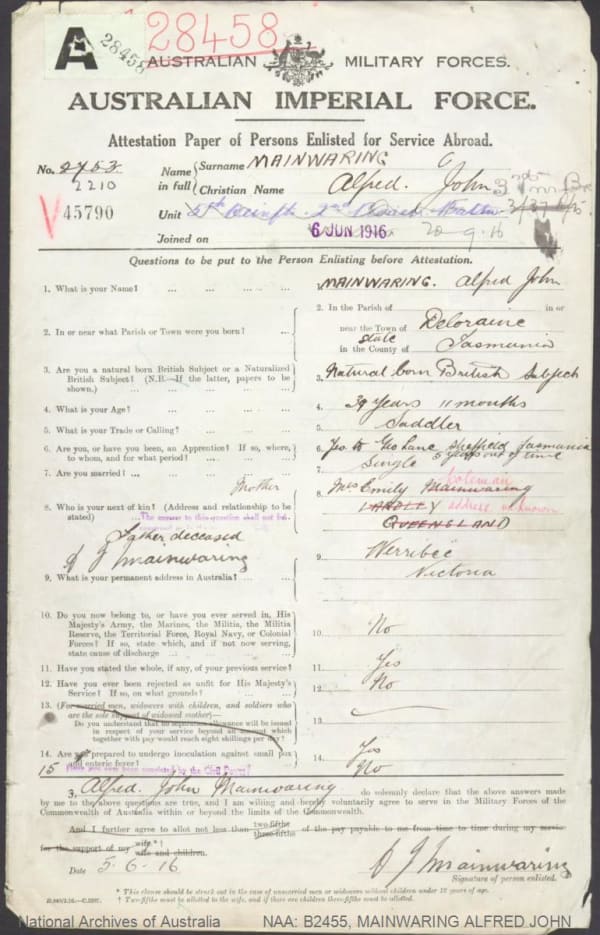 A 28458
28458
AUSTRALIAN MILITARY FORCES.
AUSTRALIAN IMPERIAL FORCE.
Attestation Paper of Persons Enlisted for Service Abroad.
No. 2753
2210
V45790
Name in full
Surname MAINWARING
Christian Name Alfred. John
Unit
Joined on 6 JUN 1916 20-9-16
Questions to be put to the Person Enlisting before Attestation.
1. What is your Name? ... MAINWARING. Alfred John
2. In or near what Parish or Town were you born? ...
2. In the Parish of in or
near the Town of Deloraine
state
in the County of Tasmania
3. Are you a natural born British Subject or a Naturalized
British Subject? (N.B.—If the latter, papers to be
shown.) ...
3. Natural born British Subject
4. What is your Age? ... 4. 39 years 11 months
5. What is your Trade or Calling? ... 5. Saddler
6. Are you, or have you been, an Apprentice? If so, where,
to whom, and for what period? ...
6. Yes to Geo Lane Sheffield Tasmania
5 years out of time
7. Are you married? ... 7. Single
Mother
8. Who is your next of kin? (Address and relationship to be
stated)
8. Mrs Emily Mainwaring
address unknown
QUEENSLAND
Father deceased
A J Mainwaring
9. What is your permanent address in Australia? ...
9. Werribee
Victoria
10. Do you now belong to, or have you ever served in, His
Majesty's Army, the Marines, the Militia, the Militia
Reserve, the Territorial Force, Royal Navy, or Colonial
Forces? If so, state which, and if not now serving,
state cause of discharge ...
10. No
11. Have you stated the whole, if any, of your previous service? 11. Yes
12. Have you ever been rejected as unfit for His Majesty's
Service? If so, on what grounds? ...
12. No
13. (For married men, widowers with children, and soldiers who
are the sole support of widowed mother)—
Do you understand that no separation allowance will be issued
in respect of your service beyond an amount which
together with pay would reach eight shillings per day?
13.
14. Are you prepared to undergo inoculation against small pox
and enteric fever?
14. Yes
15 No
I, Alfred John Mainwaring do solemnly declare that the above answers made
by me to the above questions are true, and I am willing and hereby voluntarily agree to serve in the Military Forces of the
Commonwealth of Australia within or beyond the limits of the Commonwealth.
And I further agree to allot not less than two-fifths three-fifths of the pay payable to me from time to time during my service
for the support of my wife* wife and children.
Date 5-6-16
A J Mainwaring
Signature of person enlisted.
* This clause should be struck out in the case of unmarried men or widowers without children under 18 years of age.
† Two-fifths must be allotted to the wife, and if there are children three-fifths must be allotted.
National Archives of Australia NAA: B2455, MAINWARING ALFRED JOHN